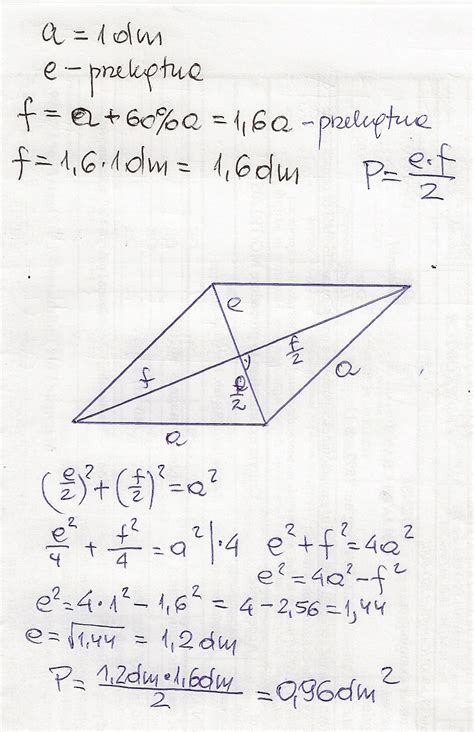 a = 1 dm
e - przekątna
f = a + 60%a = 1,6a - przekątna
f = 1,6 · 1 dm = 1,6 dm
P = e·f/2
e
f
f/2
e/2
a
a
(e/2)² + (f/2)² = a²
e²/4 + f²/4 = a² |·4 e² + f² = 4a²
e² = 4a² - f²
e² = 4·1² - 1,6² = 4 - 2,56 = 1,44
e = √1,44 = 1,2 dm
P = 1,2dm·1,6dm/2 = 0,96 dm²